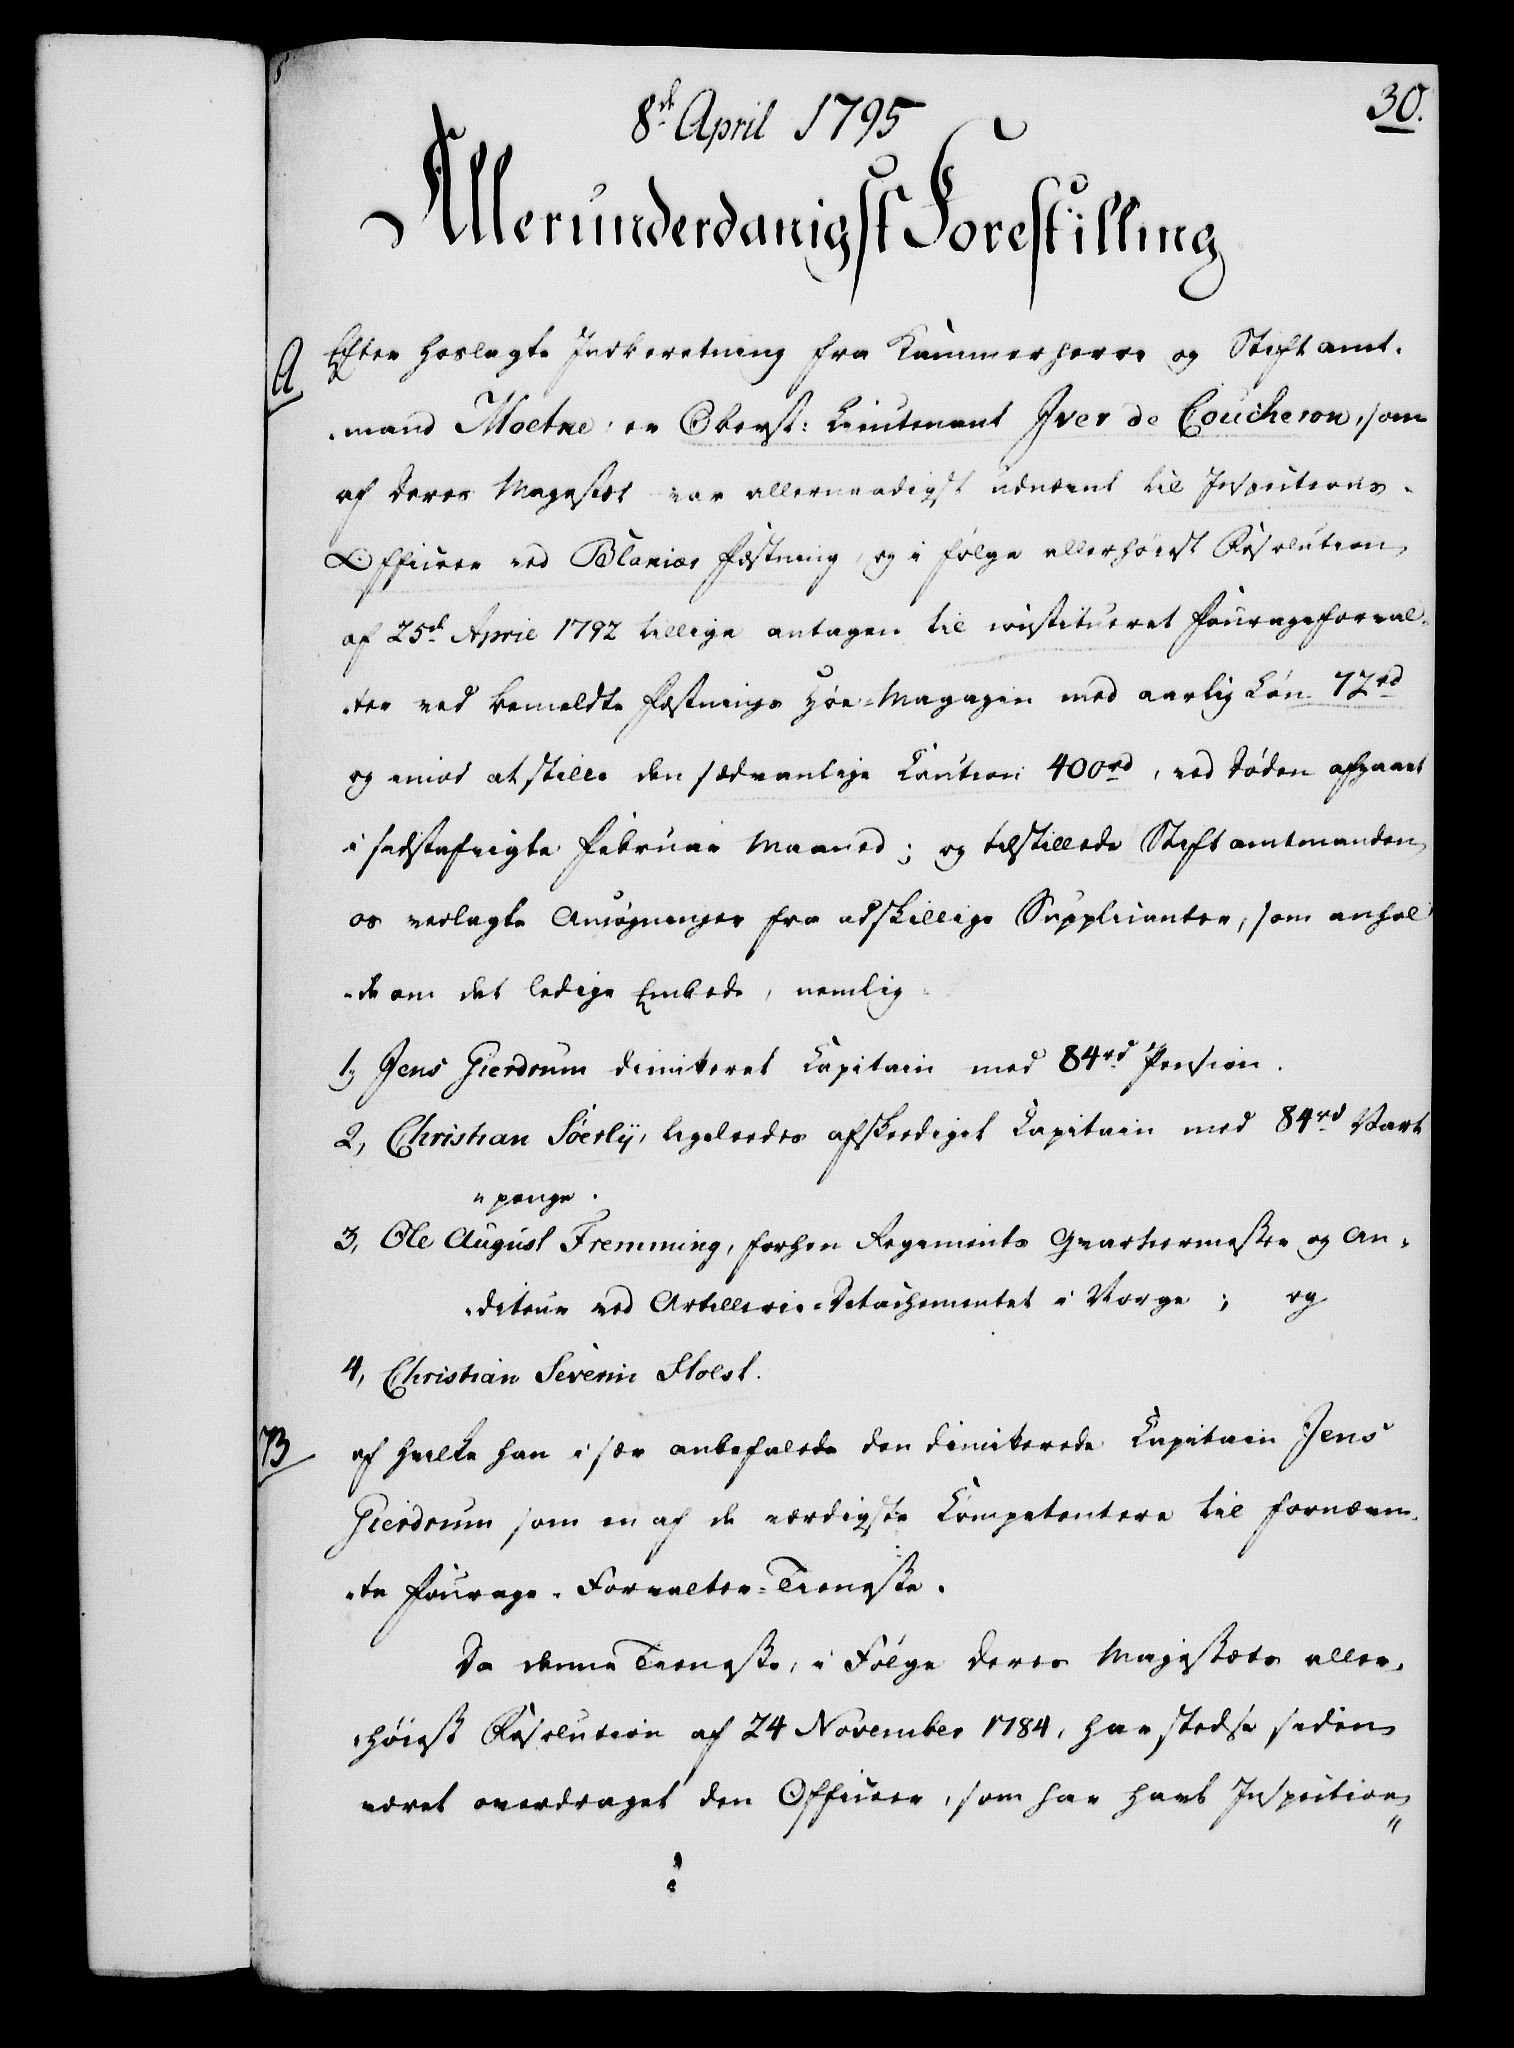 30.
8de April 1795
Allerunderdanigst Forestilling
A Efter hoslagte Indberetning fra Kammerherre og Stiftamt-
-mand Moetne, er Oberst: Lieutenant Iver de Coucheron, som
af Deres Majestæt var allernaadigst udnævnt til Inspections-
Officeer ved Blakiær Fæstning, og i følge allerhøiest Resolution
af 25de April 1792 tillige antagen til constitueret Fourageforval-
-ter ved bemeldte Fæstnings Høe-Magazin med aarlig Løn 72rd
og imod at stille den sædvanlige Caution 400rd, ved Døden afgaaet
i sidstafvigte Februar Maaned; og tilstillede Stiftamtmanden
os verlagte Ansøgninger fra adskillige Supplicanter, som anhol-
-de om det ledige Embede, nemlig
1, Jens Gierdrum dimitteret Capitain med 84rd Pension.
2, Christian Söerly, ligeledes afskediget Capitain med 84rd Vart
-penge.
3, Ole August Fremming, forhen Regiments Qvarteermester og Au-
-diteur ved Artillerie-Detachementet i Norge; og
4, Christian Severin Holst.
B af hvilke han i sær anbefalede den dimitterede Capitain Jens
Gierdrum som en af de værdigste Competentere til fornævn-
-te Fourage-Forvalter-Tieneste.
Da denne Tieneste, i Følge Deres Majestæts aller-
-høiest Resolution af 24 November 1784, har stedse siden
været overdraget den Officeer, som har havt Inspection